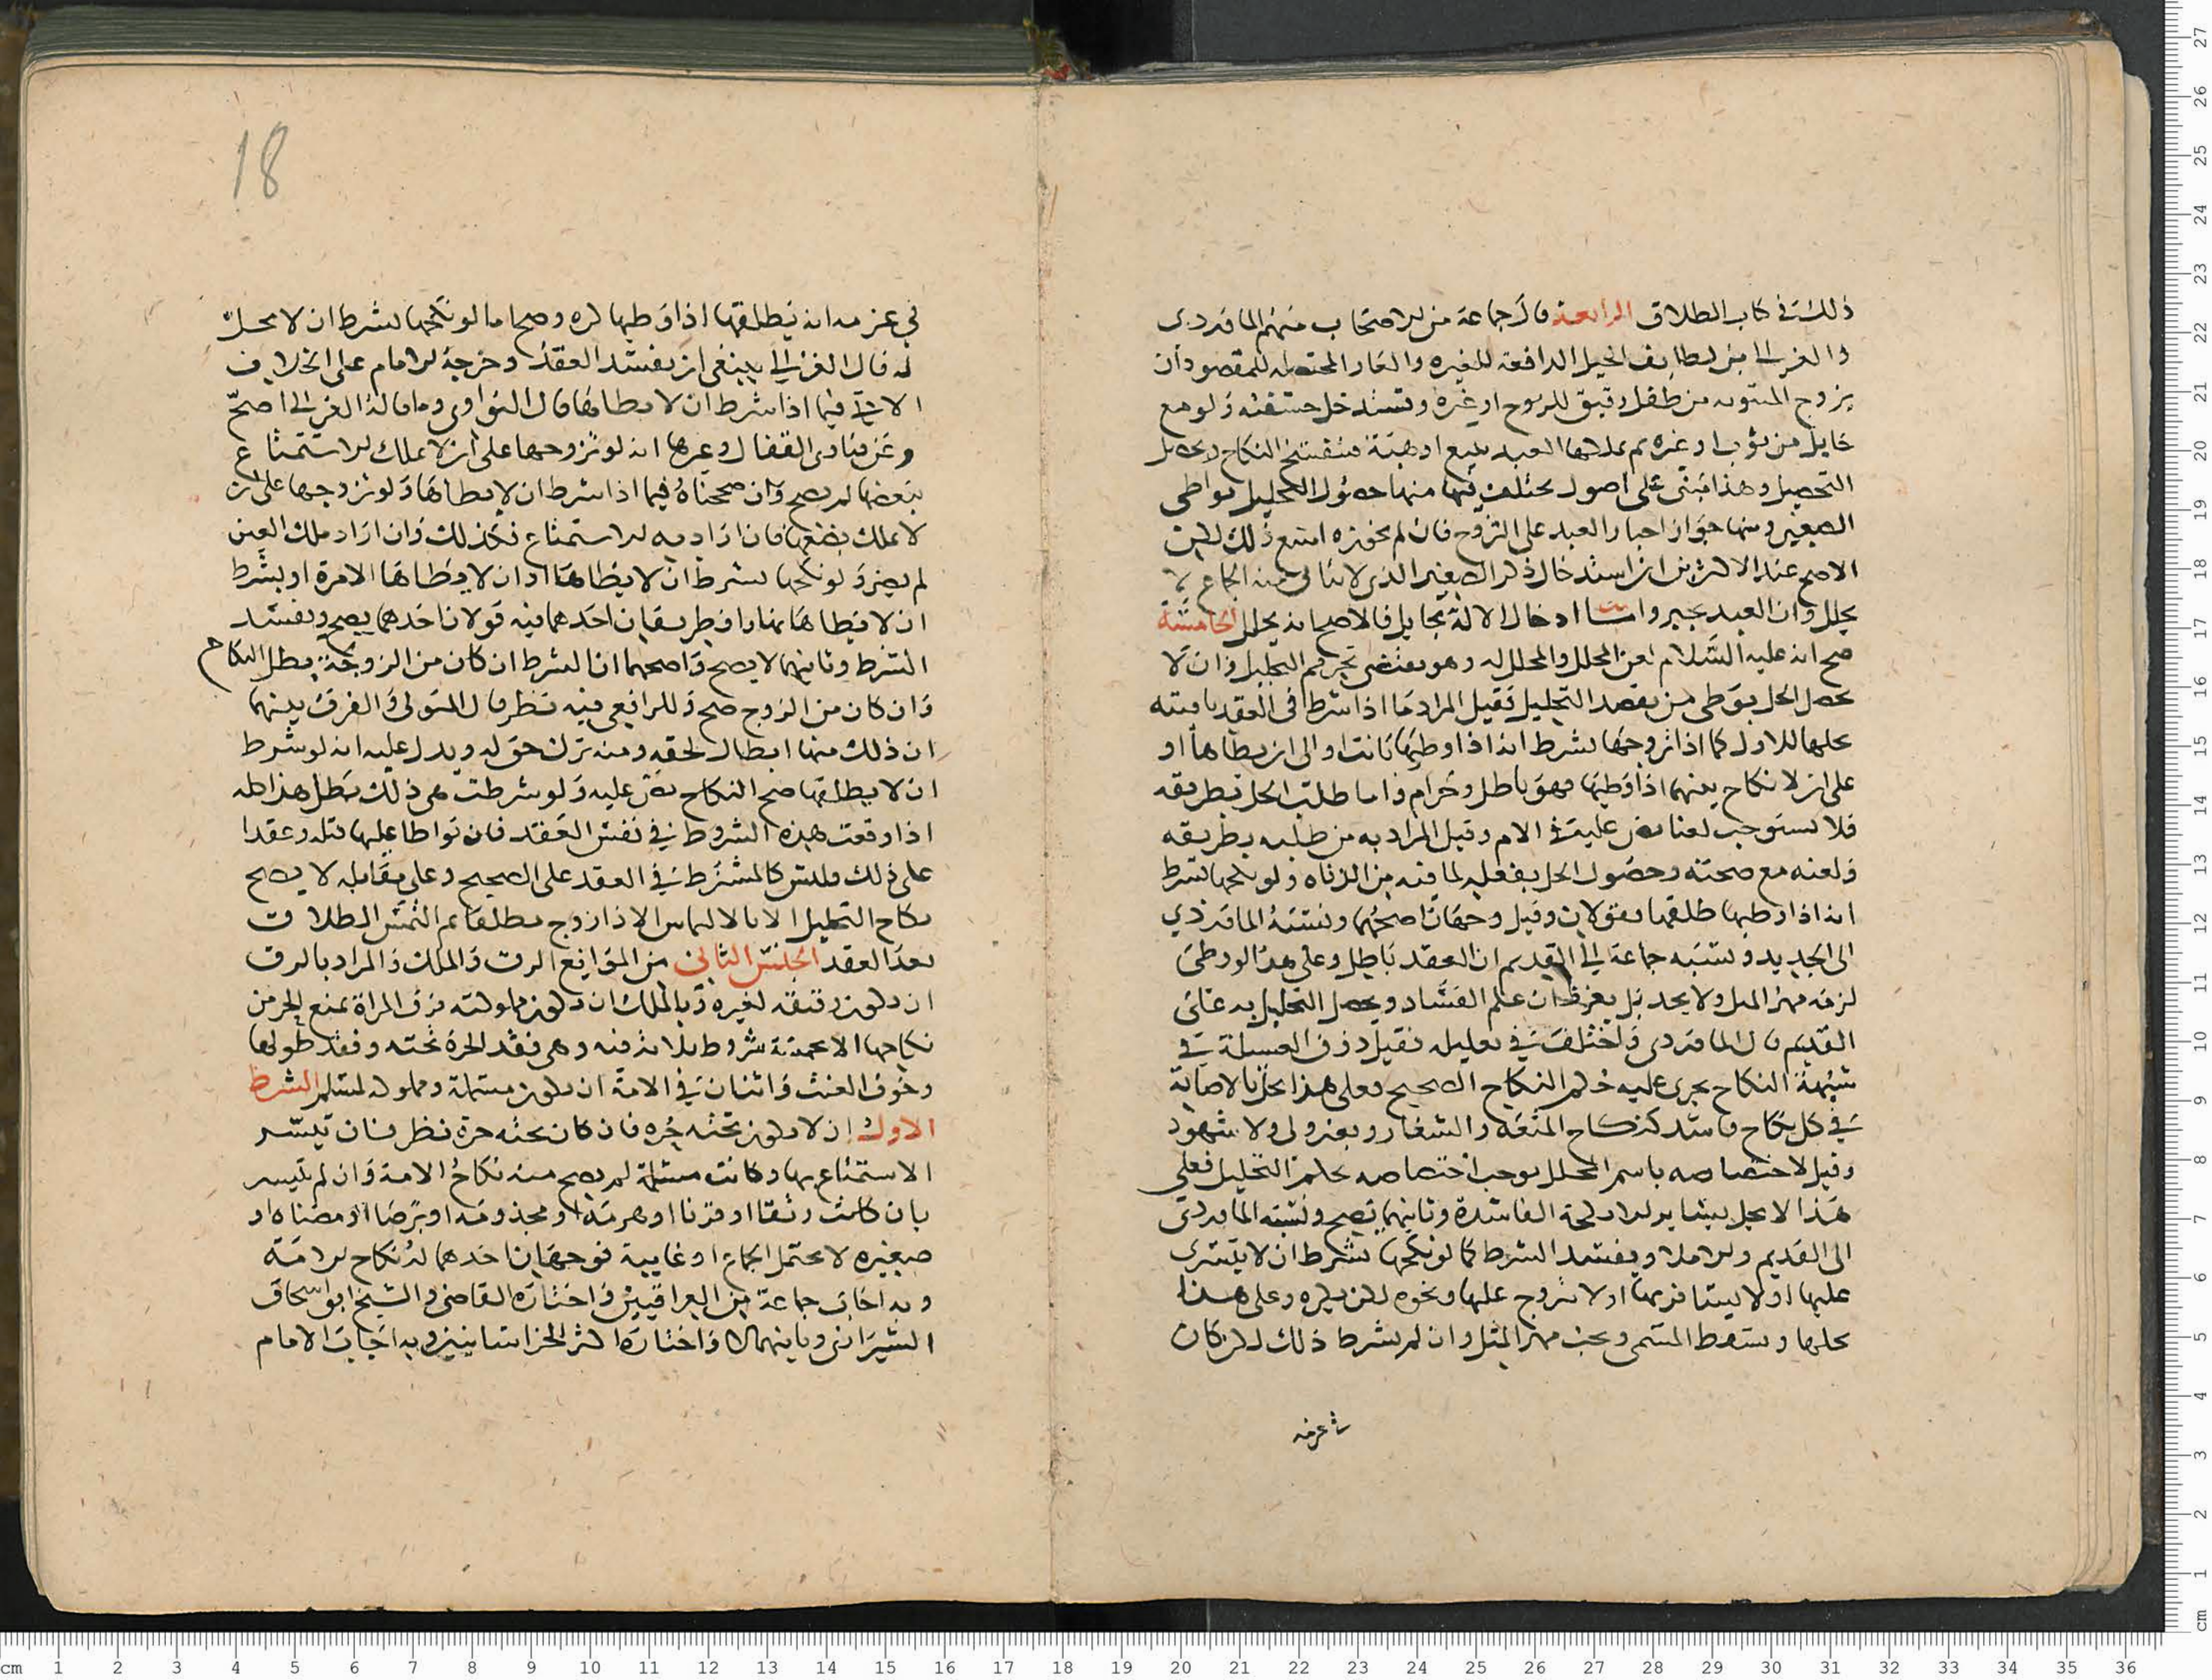 ذلك في كتاب الطلاق الرابعة قال جماعة من الاصحاب منهم الماوردى
والغزالي من لطايف الحيل الدافعة للغيره والعار المحصله للمقصود أن
يزوج المبتوته من طفل رقيق للزوج او غيره وتستدخل حشفته ولو مع
حايل من ثوب او غيره ثم يملكها العبد ببيع او هبة فينفسخ النكاح ويحصل
التحصيل وهذا مبنى على اصول يختلف فيها منها حصول التحليل بوطى
الصغير ومنها جواز اجبار العبد على التزوج فان لم نجوزه امتنع ذلك لكن
الاصح عند الاكثرين ان استدخال ذكر الصغير الذى لا يتاتى منه الجماع لا
يحلل وان العبد يجبر واما ادخال الالة بحايل فالاصح انه يحلل الخامسة
صح انه عليه السلام لعن المحلل والمحلل له وهو يقتضى تحريم التحليل وان لا
يحصل الحل بوطى من يقصد التحليل فقيل المراد ما اذا شرط في العقد ما
يحلها للاول كما اذا تزوجها بشرط انه اذا وطيها بانت او الى ان يطاها او
على ان لا نكاح بينهما اذا وطيها فهو باطل وحرام واما طلب الحل بطريقه
فلا يستوجب لعنا نص عليه في الام وقيل المراد به من طلبه بطريقه
ولعنه مع صحته وحصول الحل بفعله لما فيه من الدناه ولو نكحها بشرط
انه اذا وطيها طلقها فقولان وقيل وجهان اصحهما ونسبه الماوردي
الى الجديد ونسبه جماعة الى القديم ان العقد باطل وعلى هذا لو وطى
لزمه مهر المثل ولا يحد بل يعزر ان علم الفساد ويحصل التحليل به على
القديم قال الماوردى واختلف في تعليله فقيل ذوق العسيلة في
شبهة النكاح يجرى عليه حكم النكاح الصحيح فعلى هذا تحل بالاصابة
في كل نكاح فاسد كنكاح المتعة والشغار وبغير ولى ولا شهود
وقيل لاختصاصه باسم المحلل يوجب اختصاصه بحكم التحليل فعلى
هذا لا يحل بساير الانكحة الفاسدة وثانيهما يصح ونسبه الماوردى
الى القديم والاملا ويفسد الشرط كما لو نكحها بشرط ان لا يتسرى
عليها او لا يسافر بها او لا يتزوج عليها ونحوه لكن يكره وعلى هذا
يحلها ويسقط المسمى ويجب مهر المثل وان لم يشرط ذلك لكن كان
في عزمه
18
في عزمه انه يطلقها اذا وطيها كره وصح اما لو نكحها بشرط ان لا تحل
له فقال الغزالي ينبغى ان يفسد العقد وخرجه الامام على الخلاف
الاتى فيما اذا شرط ان لا يطاها قال النواوى وما قاله الغزالى اصح
وعن فتاوى القفال وغيرها انه لو تزوجها على ان لا يملك الاستمتاع
ببضعها لم يصح وان صححناه فيما اذا شرط ان لا يطاها ولو تزوجها على ان
لا يملك بضعها فان اراد به الاستمتاع فكذلك وان اراد ملك العين
لم يضر ولو نكحها بشرط ان لا يطاها او ان لا يطاها الا مرة او بشرط
ان لا يطاها نهارا فطريقان احدهما فيه قولان احدهما يصح ويفسد
الشرط وثانيهما لا يصح واصحهما ان الشرط ان كان من الزوجة بطل النكاح
وان كان من الزوج صح وللرافعى فيه نظر قال المتولى والفرق بينهما
ان ذلك منها ابطال لحقه ومنه ترك حق له ويدل عليه انه لو شرط
ان لا يطلقها صح النكاح نص عليه ولو شرطت هى ذلك بطل هذا كله
اذا وقعت هذه الشروط في نفس العقد فان تواطا عليها قبله وعقدا
على ذلك فليس كالمشترط في العقد على الصحيح وعلى مقابله لا يصح
نكاح التحليل الا الاذا زوج مطلقا الطلاق
بعد العقد الجنس الثاني من الموانع الرق والملك والمراد بالرق
ان يكون رقيقه لغيره وبالملك ان يكون مملوكته فرق المراة يمنع الحر من
نكاحها الا عند شروط ثلاثة فيه وهى فقد الحرة تحته وفقد طولها
وخوف العنت واثنان في الامة ان يكون مسلمة ومملوكه لمسلم الشرط
الاول ان لا يكون تحته حره فان كان تحته حرة نظر فان تيسر
الاستمتاع بها وكانت مسلمة لم يصح منه نكاح الامة وان لم يتيسر
بان كانت رتقا او قرنا او هرمة او مجذومه او برصا او مضناه او
صغيره لا تحتمل الجماع او غايبة فوجهان احدهما له نكاح الامة
وبه اجاب جماعة من العراقيين واختاره القاضى والشيخ ابو اسحاق
الشيرازى وثانيهما لا واختاره اكثر الخراسانيين وبه اجاب الامام